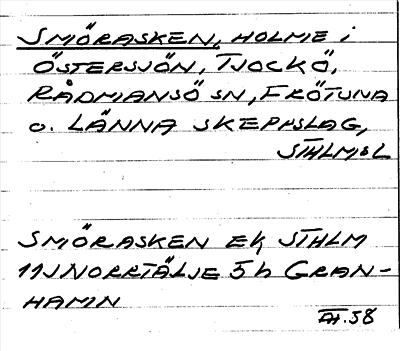 SMÖRASKEN, HOLME i
ÖSTERSJÖN, TJOCKÖ,
RÅDMANSÖ SN, FRÖTUNA
o. LÄNNA SKEPPSLAG,
STHLMS L
SMÖRASKEN EK, STHLM
11J NORRTÄLJE 5h GRAN-
HAMN
.58